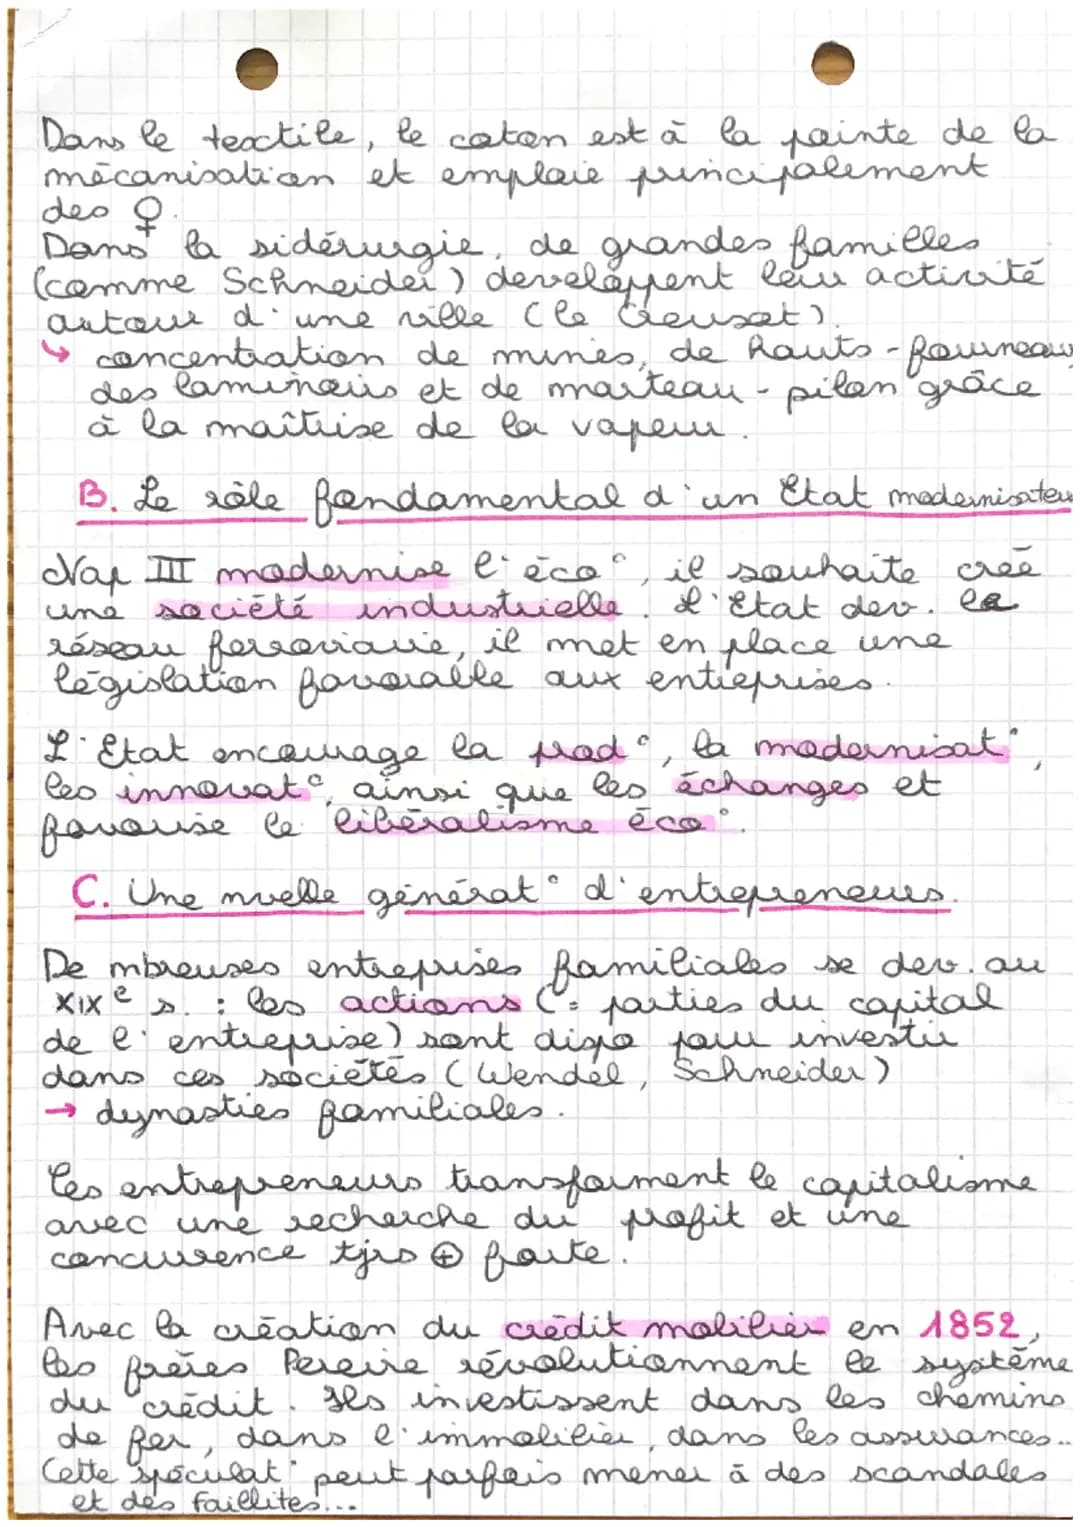 Dans le textile, le coton est à la pointe de la
mécanisation et emploie principalement
des ♀.
Dans la sidérurgie, de grandes familles
(comme Schneider) developpent leur activité
autour d'une ville (le Creusot).
↳ concentration de mines, de hauts-fourneaux
des laminoirs et de marteau-pilon grâce
à la maîtrise de la vapeur.
B. Le rôle fondamental d'un Etat modernisateur
Nap III modernise l'éco°, il souhaite créé
une société industrielle. L'Etat dev. le
réseau ferroviaire, il met en place une
législation favorable aux entreprises.
L'Etat encourage la prod°, la modernisat°,
les innovat°, ainsi que les échanges et
favorise le libéralisme éco°.
C. Une nvelle générat° d'entrepreneurs.
De mbreuses entreprises familiales se dev. au
XIXe s. : les actions (= parties du capital
de l'entreprise) sont dispo pour investir
dans ces sociétés (Wendel, Schneider)
→ dynasties familiales.
Les entrepreneurs transforment le capitalisme
avec une recherche du profit et une
concurrence tjrs ⊕ forte.
Avec la création du crédit mobilier en 1852,
les frères Pereire révolutionnent le système
du crédit. Ils investissent dans les chemins
de fer, dans l'immobilier, dans les assurances...
Cette spéculat° peut parfois mener à des scandales
et des faillites...